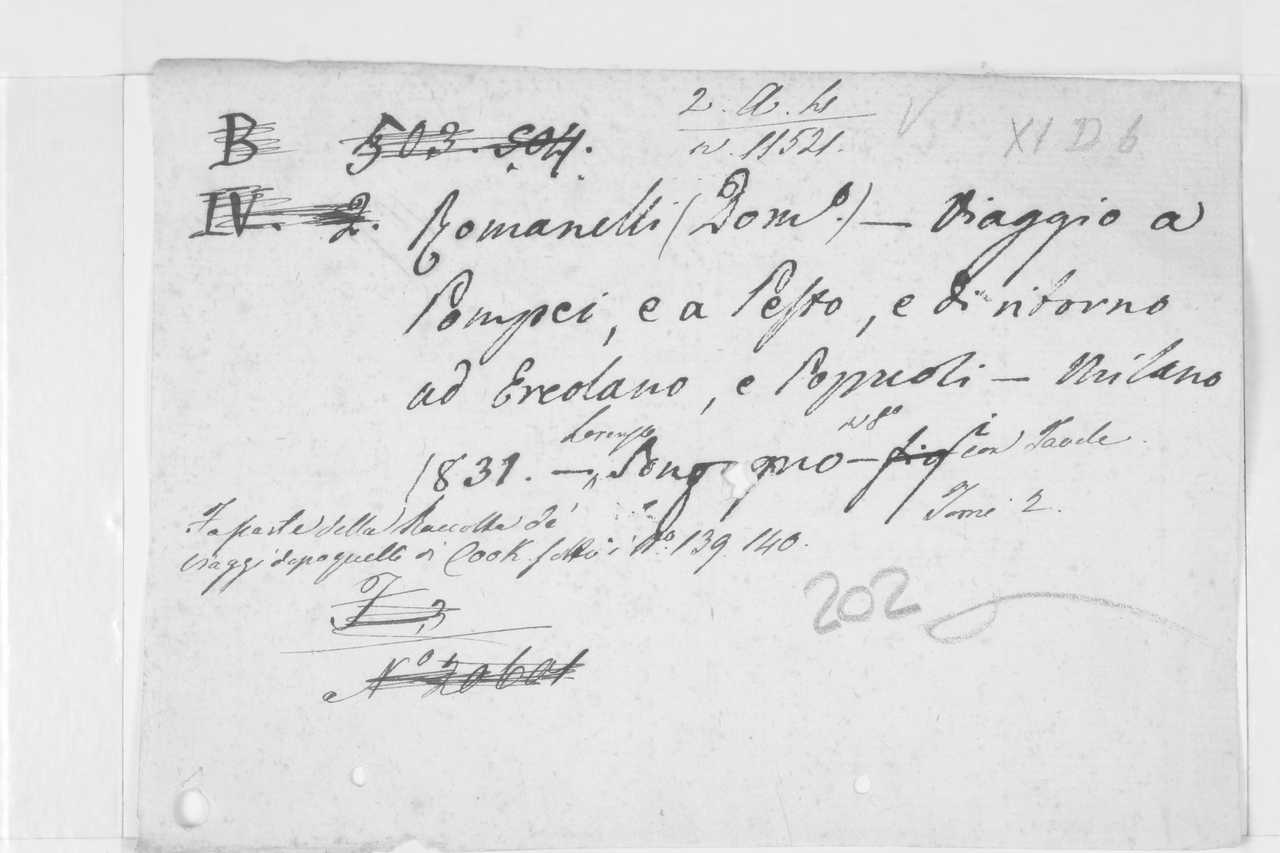 B 503. 504. 2. A. hs V XI D 6
n. 11521.
IV. 2. Romanelli (Dom.º) — Viaggio a
Pompei, e a Pesto, e di ritorno
ad Ercolano, e Pozzuoli — Milano
1831. — Lorenzo Sonzogno — in 8º fig.ⁱ con Tavole.
Tomi 2.
Fa parte della Raccolta de'
viaggi dopo quelli di Cook sotto i Nº. 139. 140.
F
3
202
Nº 20601